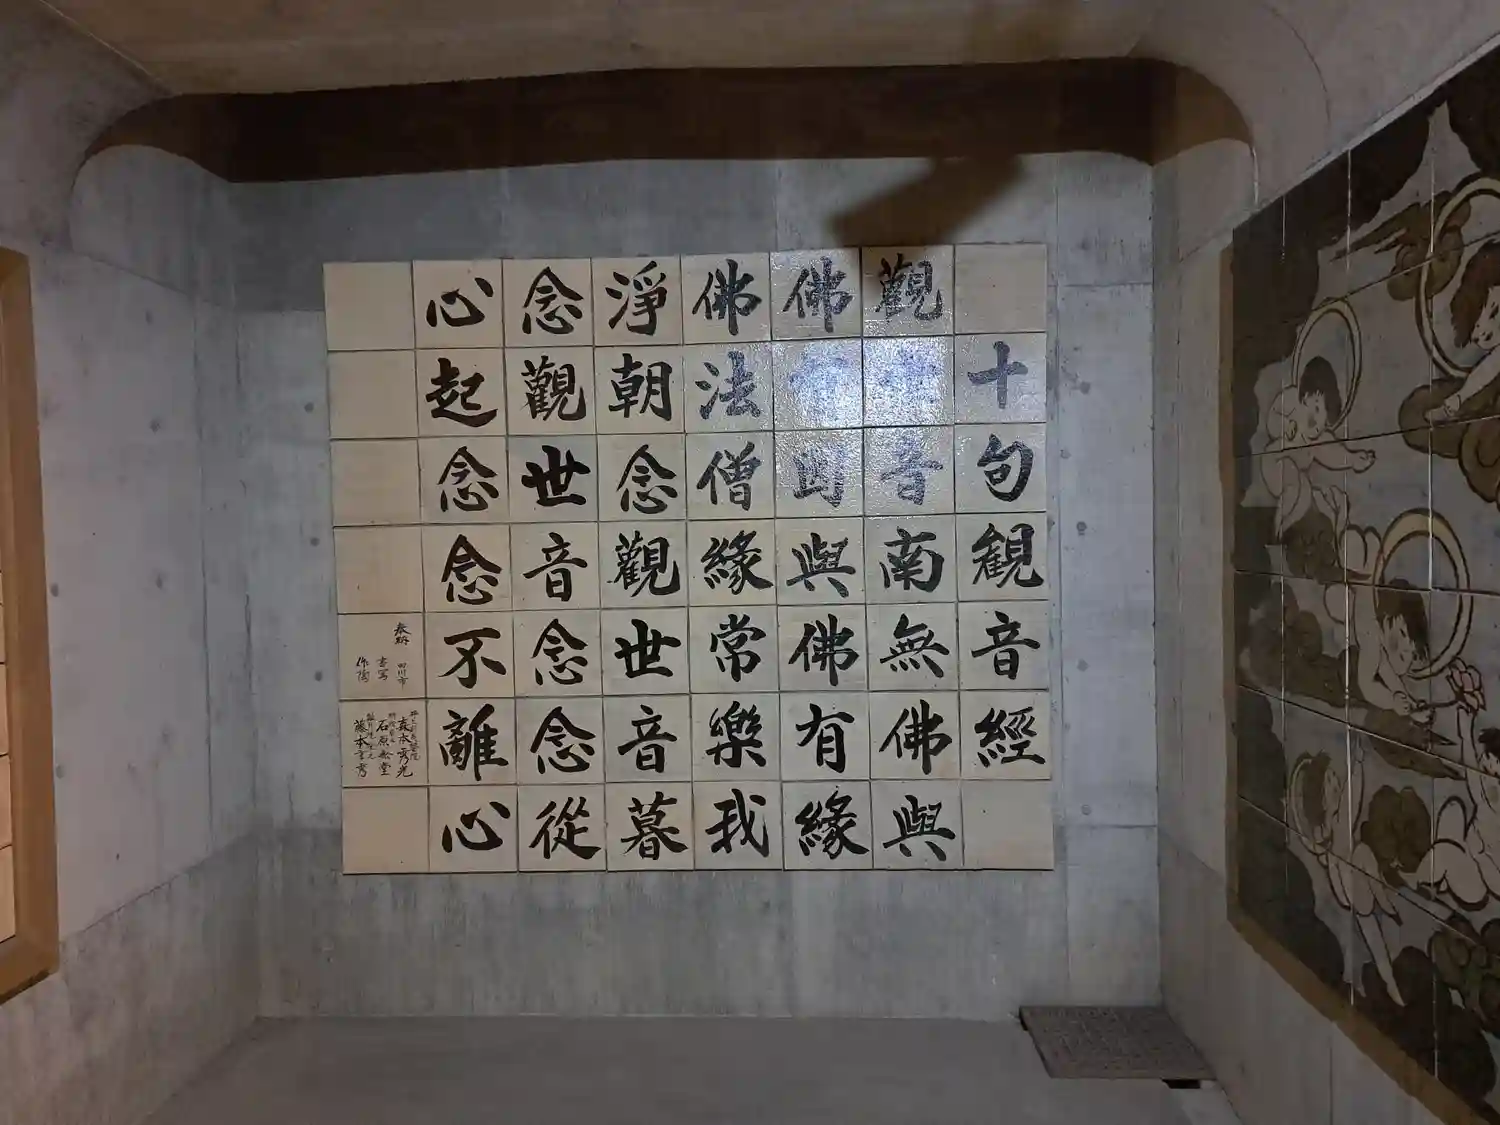 十句観音經
觀世音南無佛與
佛有因與佛有緣
佛法僧緣常樂我
淨朝念觀世音暮
念觀世音念念從
心起念念不離心
奉納 田川市 森本秀光
書写 石原
作陶 藤本